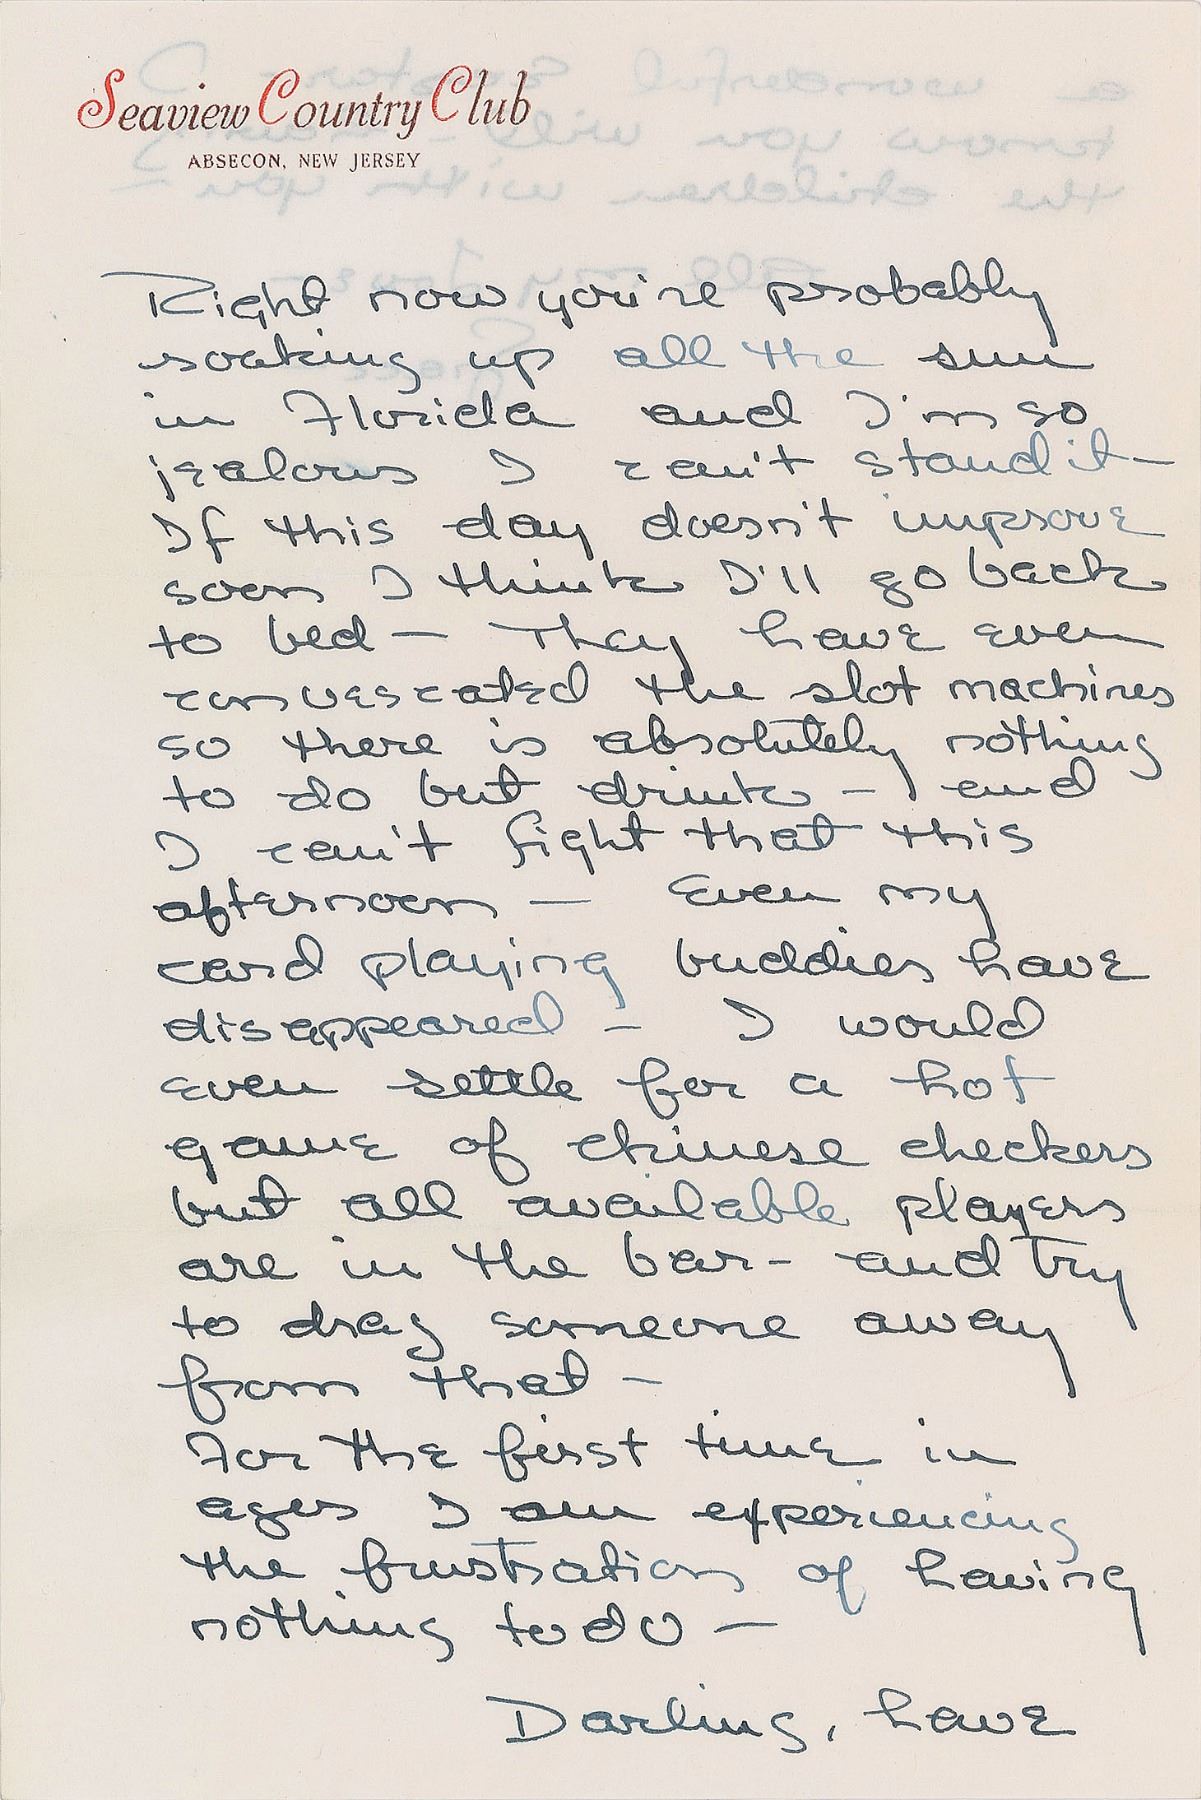 Seaview Country Club
ABSECON, NEW JERSEY
Right now you're probably
soaking up all the sun
in Florida and I'm so
jealous I can't stand it—
If this day doesn't improve
soon I think I'll go back
to bed — They have even
convescated the slot machines
so there is absolutely nothing
to do but drink — and
I can't fight that this
afternoon — Even my
card playing buddies have
disappeared — I would
even settle for a hot
game of chinese checkers
but all available players
are in the bar - and try
to drag someone away
from that —
For the first time in
ages I am experiencing
the frustration of having
nothing to do —
Darling, have